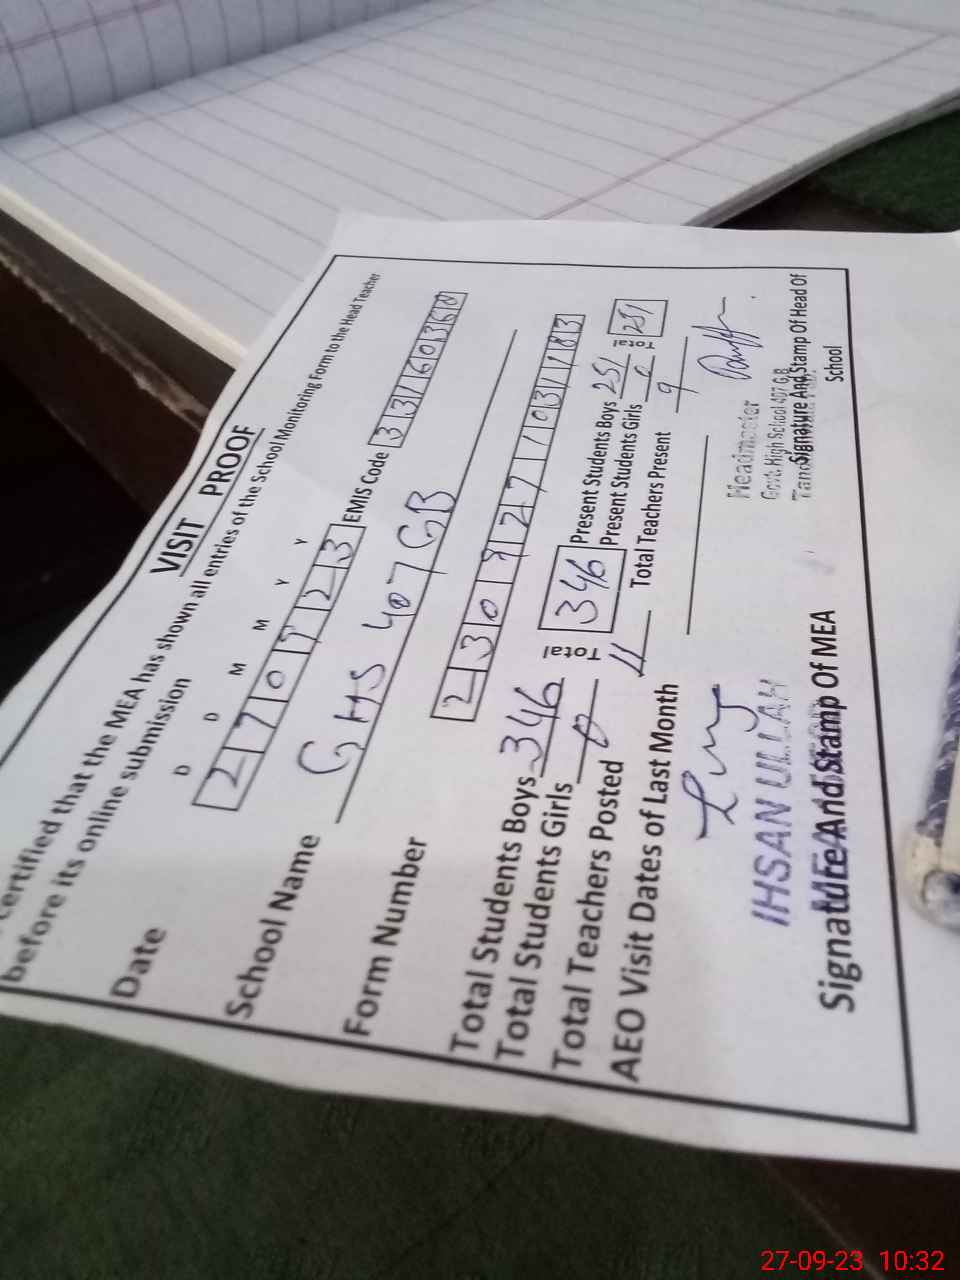 VISIT PROOF
certified that the MEA has shown all entries of the School Monitoring Form to the Head Teacher
before its online submission
D D M M Y Y
Date 270923 EMIS Code 33160360
School Name GHS 407 GB
Form Number 2309271031183
Total Students Boys 346 Total 346 Present Students Boys 251 Total 251
Total Students Girls 0 Present Students Girls 0
Total Teachers Posted 11 Total Teachers Present 9
AEO Visit Dates of Last Month
IHSAN ULLAH
Signature And Stamp Of MEA
Headmaster
Govt. High School 407 G.B
Signature And Stamp Of Head Of
School
27-09-23 10:32